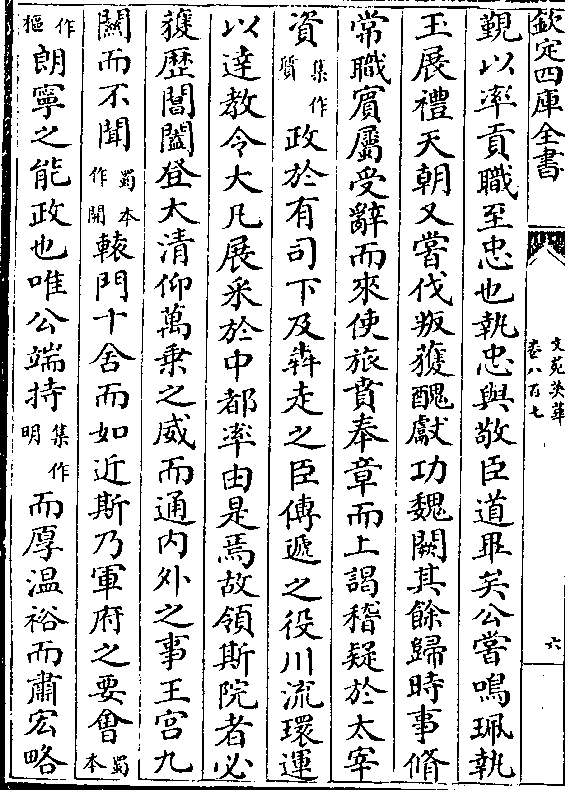 欽定四庫全書
文苑英華
卷八百七
六
覲以率貢職至忠也執忠與敬臣道畢矣公嘗鳴珮執
玉展禮天朝又當伐叛獲醜獻功魏闕其餘歸時事脩
常職賓屬受辭而來使旅賁奉章而上謁稽疑於太宰
資集作質政於有司下及犇走之臣傳遞之役川流環運
以達教令大凡展采於中都率由是焉故領斯院者必
獲歷閶闔登太清仰萬乗之威而通内外之事王宫九
關而不聞蜀本作閒轅門十舍而如近斯乃軍府之要㑹蜀本
作樞朗寧之能政也唯公端持集作明而厚温裕而肅宏略